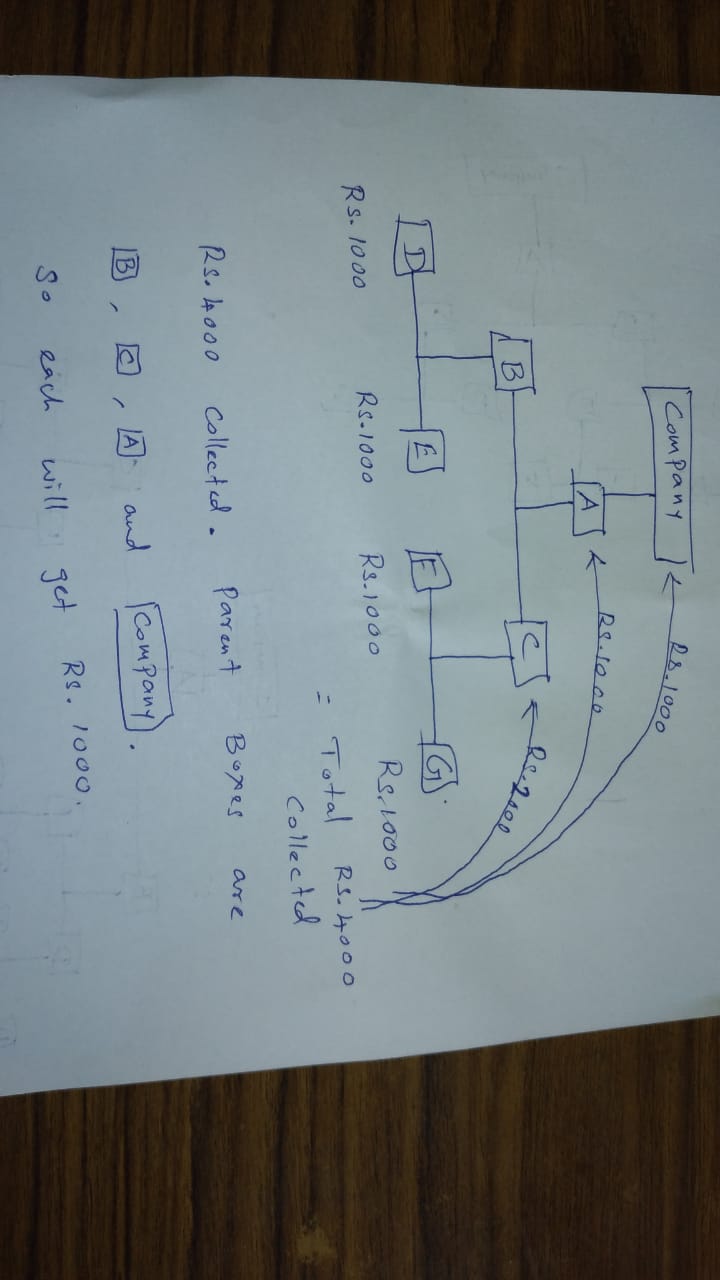 Company
Rs.1000
A
Rs.1000
B
C
Rs.2000
D
E
F
G
Rs.1000
Rs.1000
Rs.1000
Rs.1000
= Total Rs.4000
collected
Rs.4000 collected. Parent Boxes are
B, C, A and Company.
So each will get Rs.1000.